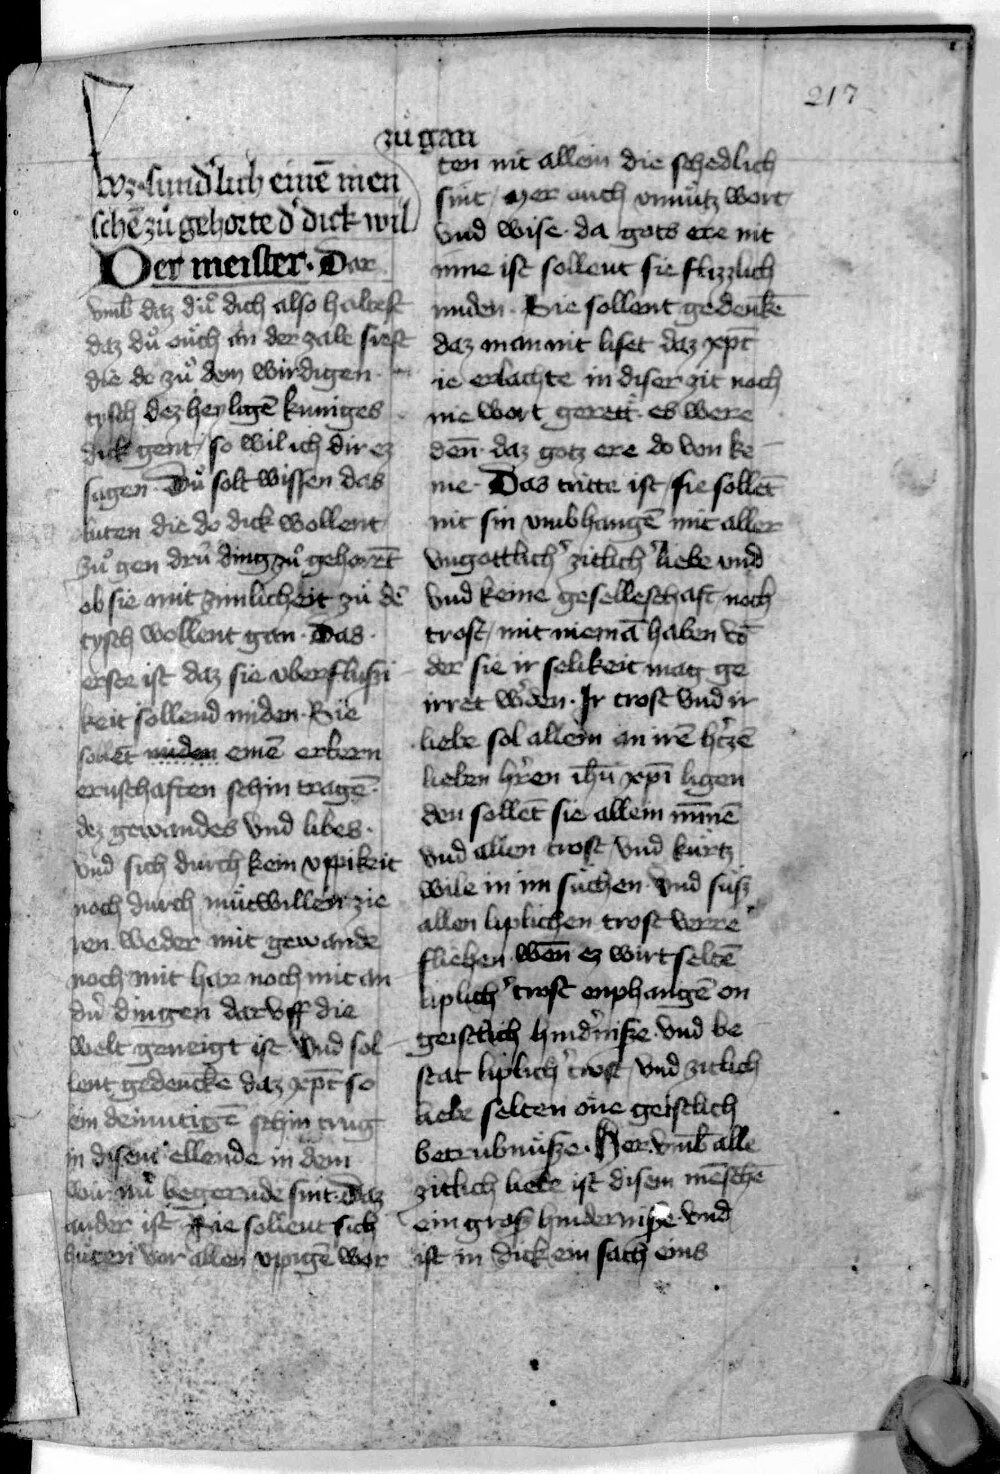 217
zů gan
wz sund'lich eine͞ men
sche͞ zů gehorte d' dick wil
Der meister. Dar
vmb daz dů dich also haltest
daz dů ouch an der zale siest
die do zů dem wirdigen
tysch dez heyligen kuniges
dick gent / so wil ich dir ez
sagen. Dů solt wissen das
luten die do dick wollent
zů gen drů ding zů gehore͞t
ob sie mit zimlicheit zů de͞
tysch wollent gan. Das
erste ist daz sie vberflussi
keit sollend miden. Sie
solle͞t miden eine͞ erbern
ernschaften schin trage͞.
dez gewandes vnd libes.
vnd sich durch kein vppikeit
noch durch můtwillen zie
ren weder mit gewande
noch mit har noch mit an
du' dingen dar vff die
welt geneigt ist. Vnd sol
lent gedencke͞ daz xp͞c so
ein demutige͞ schin trug
in disem ellende in dem
wir nů begernde sint. Daz
ander ist. Sie sollent sich
hůten vor allen vppige͞ wor
ten nit allein die schedlich
sint / mer ouch vnnůtz wort
vnd wise. da gots ere nit
inne ist sollent sie flizzlich
miden. Sie sollent gedencke͞
daz man nit liset daz xp͞c
ie erlachte in diser zit noch
nie wort gerett. es were
den͞. daz gotz ere do von ke
me. Das tritte ist / sie solle͞t
nit sin vmbhange͞ mit aller
vngottlich' zitlich' liebe vnd
vnd keine geselleschaft / noch
trost / mit niema͞ haben vo͞
der sie ir selikeit mag ge
irret w'den. Ir trost vnd ir
liebe sol allein an ire͞ h'tze͞
lieben h'ren ih͞u xp͞i ligen
den solle͞t sie allein mi͞ne͞
vnd allen trost / vnd kurtz
wile in im sůchen. vnd susz
allen liplichen trost verre
fliehen. wen͞ ez wirt selte͞
liplich' trost enphange͞ on
geistlich hind'nisze. vnd be
stat liplich' trost / vnd zitlich
liebe selten one geistlich
betrubnůsze. Her vmb alle
zitlich liebe ist disem me͞sche͞
ein grosz hindernisze. vnd
ist in dick ein sach eins